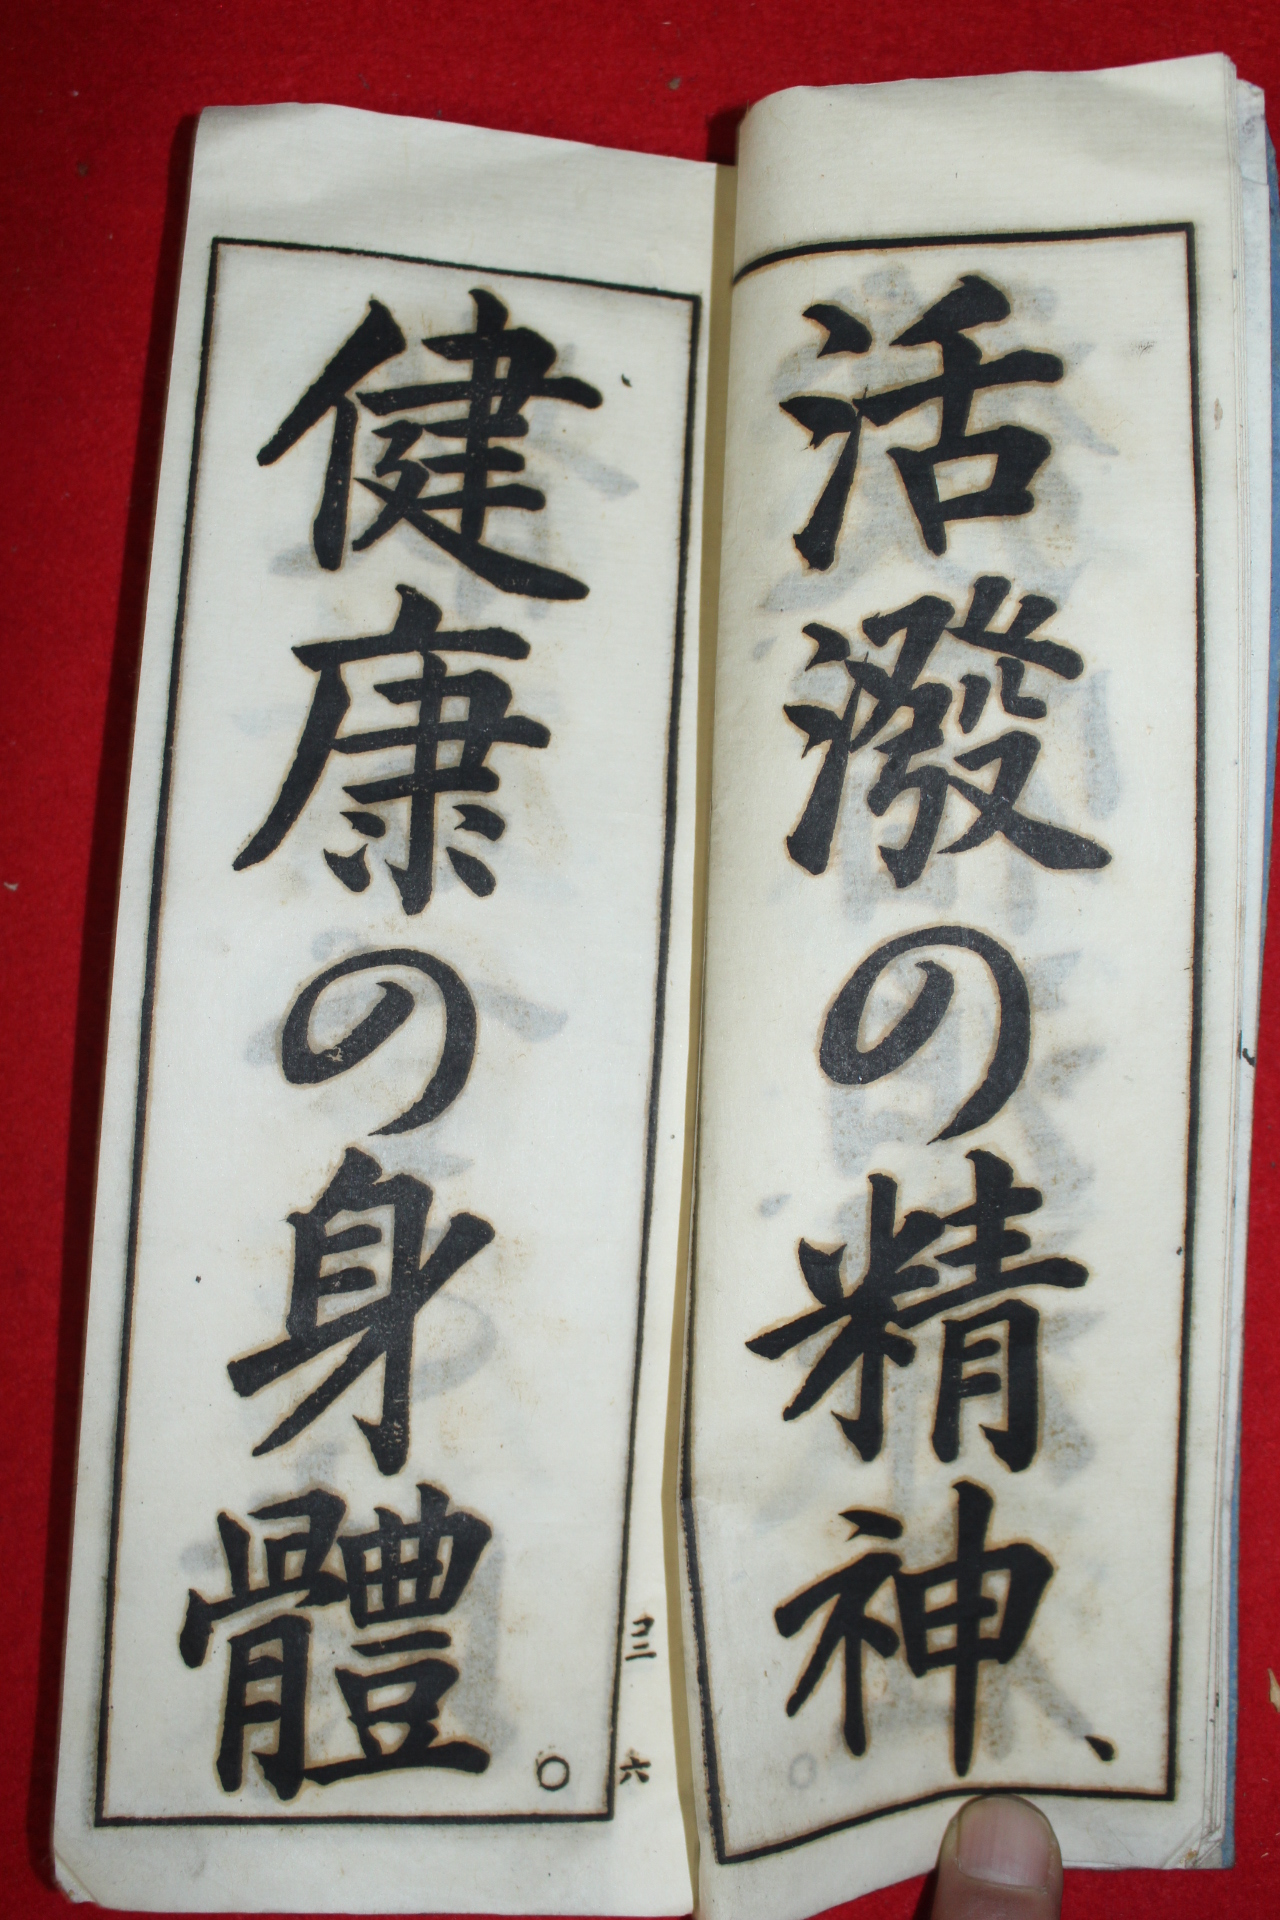 活潑の精神、
健康の身體○
コ三
六